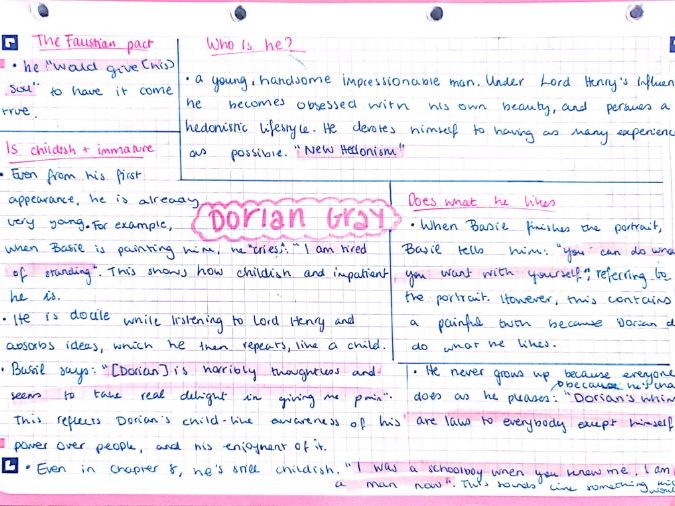 The Faustian pact
• he "would give (his)
soul" to have it come
true.
Who is he?
• a young, handsome impressionable man. Under Lord Henry's influen
he becomes obsessed with his own beauty, and persues a
hedonistic lifestyle. He devotes himself to having as many experienc
as possible. "New Hedonism"
Is childish + immature
• Even from his first
appearance, he is already
very young. For example,
when Basil is painting him, he "cries": "I am tired
of standing". This shows how childish and impatient
he is.
• He is docile while listening to Lord Henry and
absorbs ideas, which he then repeats, like a child.
• Basil says: "[Dorian] is horribly thoughtless and
seems to take real delight in giving me pain".
This reflects Dorian's child-like awareness of his
power over people, and his enjoyment of it.
• Even in Chapter 8, he's still childish. "I was a schoolboy when you knew me. I am
a man now". This sounds like something
Dorian Gray
Does what he likes
• When Basil finishes the portrait,
Basil tells him: "you can do wha
you want with yourself", referring to
the portrait. However, this contains
a painful truth because Dorian d
do what he likes.
• He never grows up because everyone
because he's cha
does as he pleases: "Dorian's whim
are laws to everybody except himself